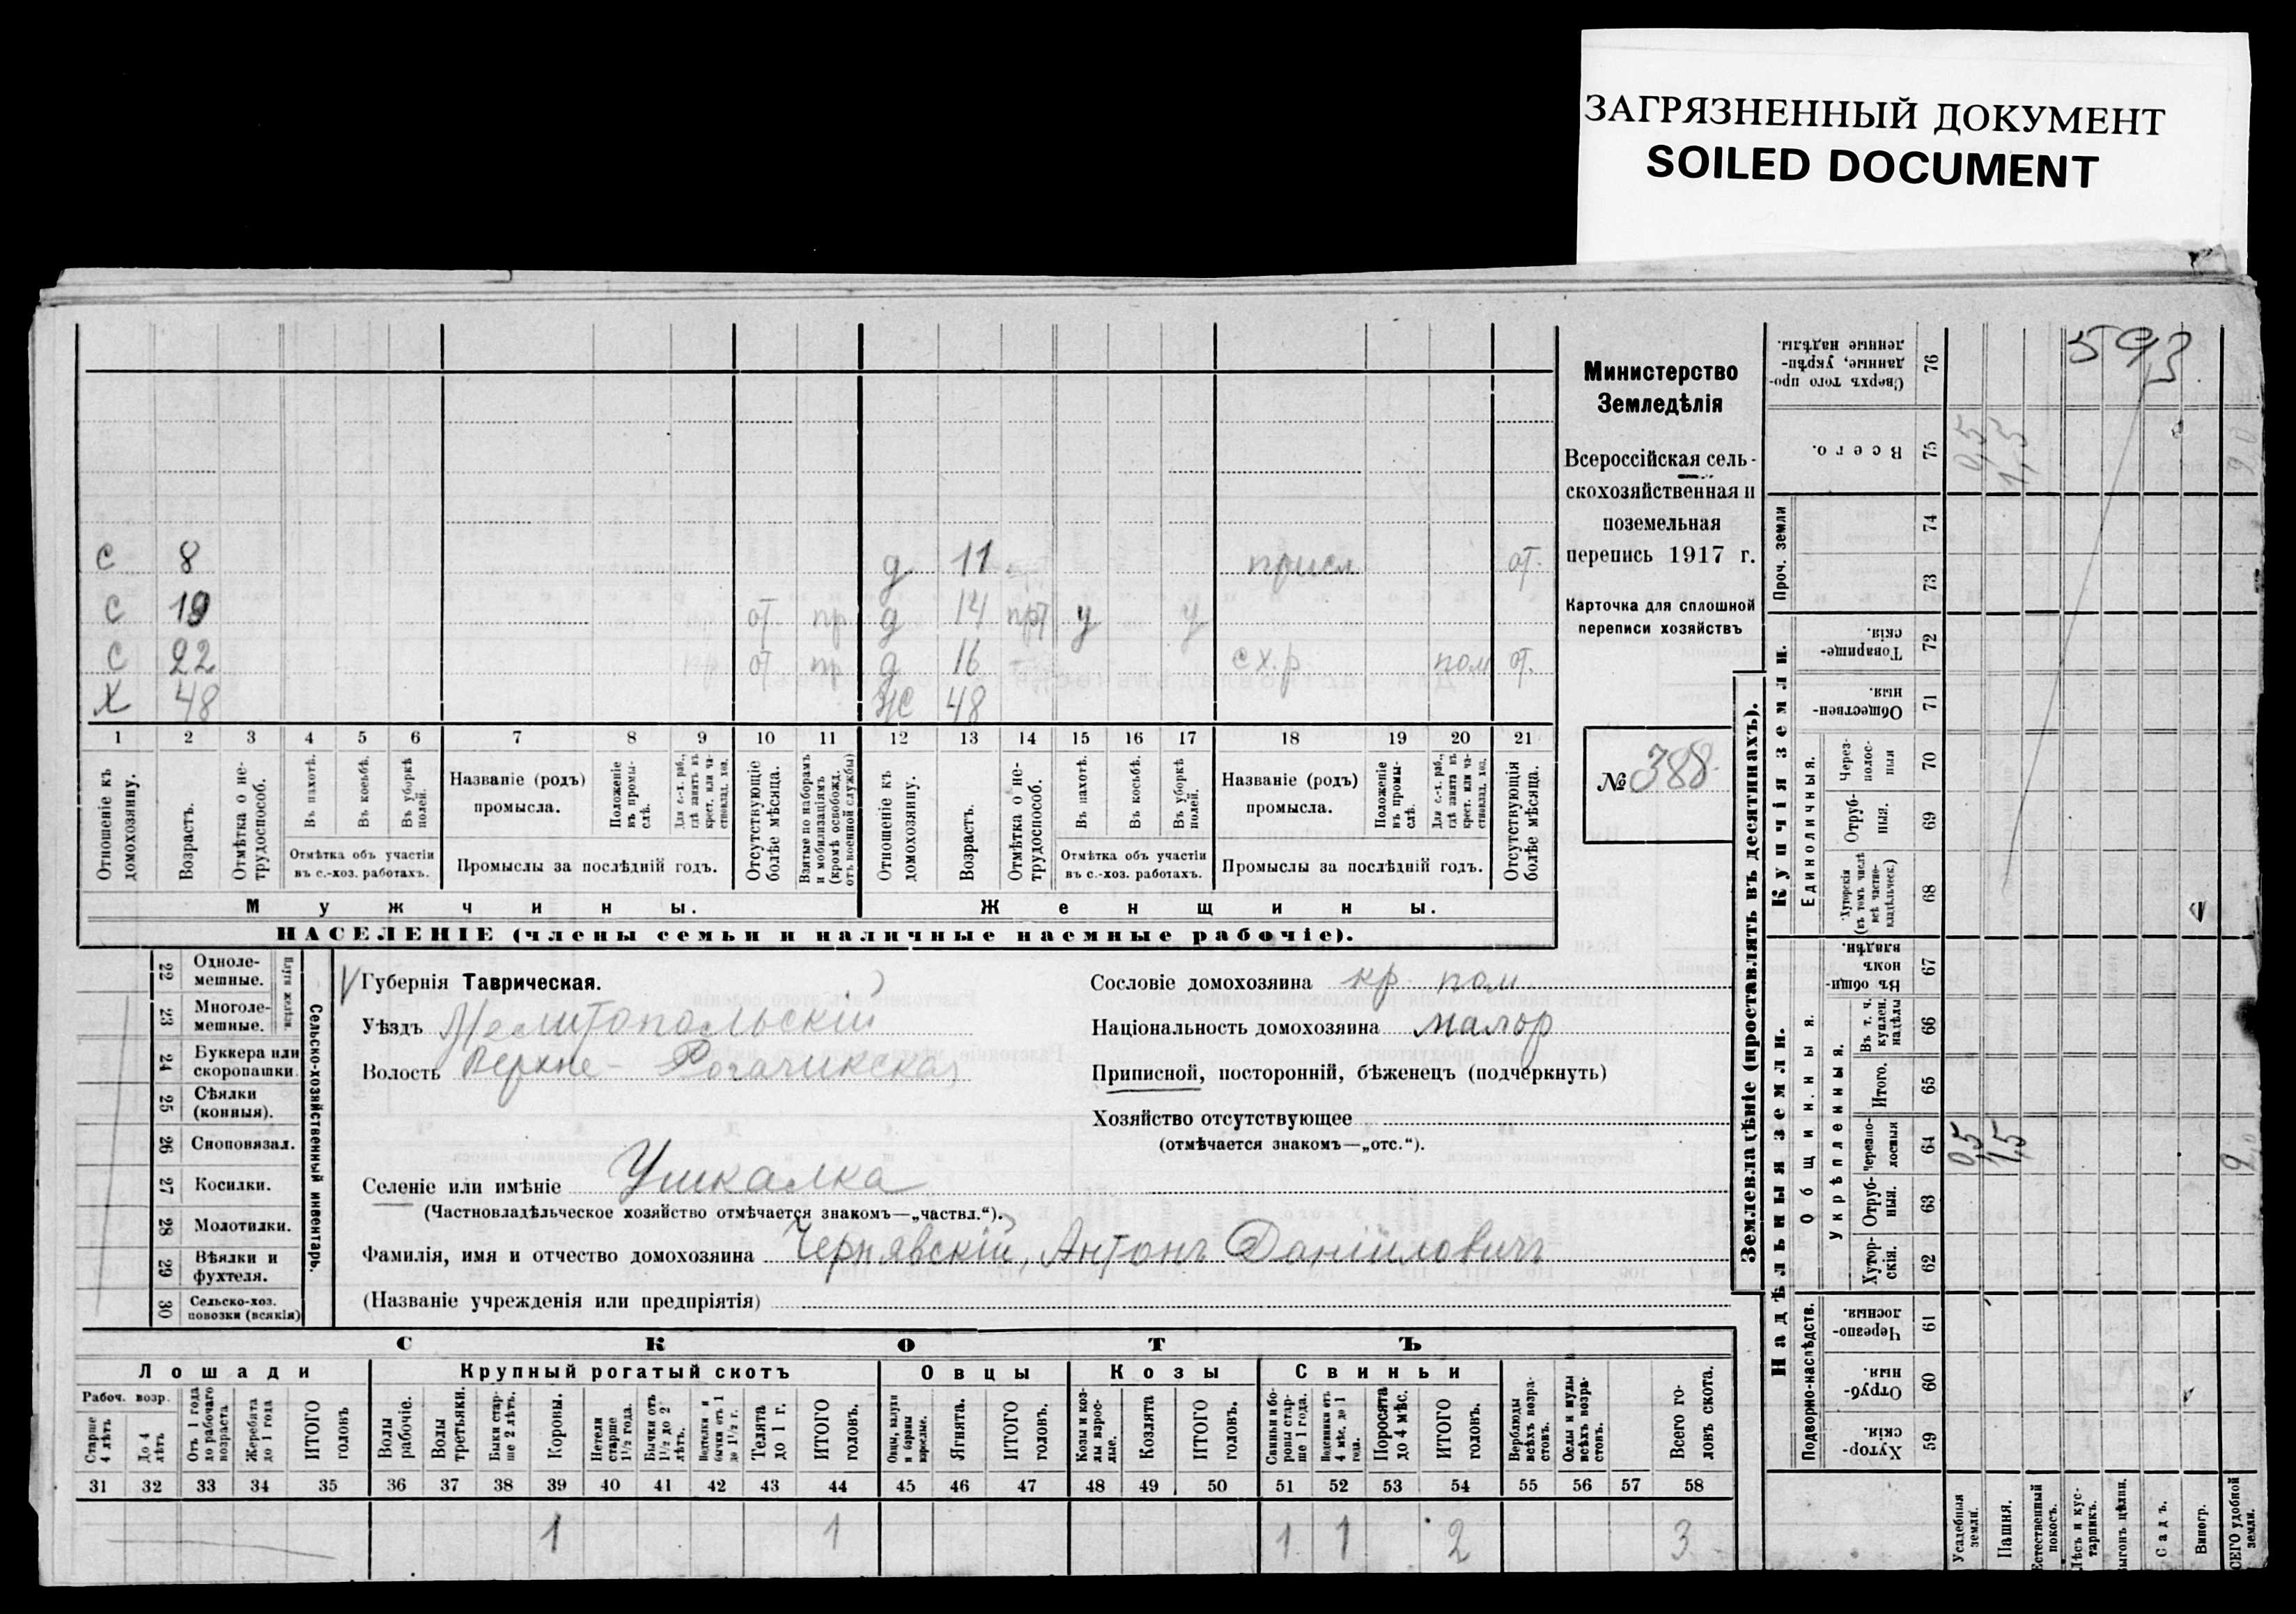 ЗАГРЯЗНЕННЫЙ ДОКУМЕНТ
SOILED DOCUMENT
593
С 8 д 11 присл от.
С 19 от пр д 14 прт у у
С 22 от пр д 16 с х. р. пом от.
Х 48 Ж 48
1 2 3 4 5 6 7 8 9 10 11 12 13 14 15 16 17 18 19 20 21
Отношеніе къ домохозяину.
Возрастъ.
Отмѣтка о не-трудоспособ.
Въ пахотѣ.
Въ косьбѣ.
Въ уборкѣ полей.
Отмѣтка объ участіи въ с.-хоз. работахъ.
Названіе (родъ) промысла.
Положеніе въ промы-слѣ.
Для с.-х. раб., гдѣ занятъ въ крест. или ча-стновлад. хоз.
Промыслы за послѣдній годъ.
Отсутствующіе болѣе мѣсяца.
Взятые по наборамъ и мобилизаціямъ (кромѣ освобожд. отъ военной службы)
Отношеніе къ домохозяину.
Возрастъ.
Отмѣтка о не-трудоспособ.
Въ пахотѣ.
Въ косьбѣ.
Въ уборкѣ полей.
Отмѣтка объ участіи въ с.-хоз. работахъ.
Названіе (родъ) промысла.
Положеніе въ промы-слѣ.
Для с.-х. раб., гдѣ занятъ въ крест. или ча-стновлад. хоз.
Промыслы за послѣдній годъ.
Отсутствующія болѣе мѣсяца.
Мужчины. Женщины.
НАСЕЛЕНІЕ (члены семьи и наличные наемные рабочіе).
Министерство
Земледѣлія
Всероссійская сель-
скохозяйственная и
поземельная
перепись 1917 г.
Карточка для сплошной
переписи хозяйствъ
№ 388
22 Одноле-мешные.
23 Многоле-мешные.
Плуги желѣзн.
24 Буккера или скоропашки.
25 Сѣялки (конныя).
26 Сноповязал.
27 Косилки.
28 Молотилки.
29 Вѣялки и фухтеля.
30 Сельско-хоз. повозки (всякія)
Сельско-хозяйственный инвентарь.
Губернія Таврическая.
Уѣздъ Мелитопольскій
Волость Верхне-Рогачикская
Селеніе или имѣніе Ушкалка
(Частновладѣльческое хозяйство отмѣчается знакомъ—„частвл.“).
Фамилія, имя и отчество домохозяина Чернявскій, Антонъ Даніиловичъ
(Названіе учрежденія или предпріятія)
Сословіе домохозяина кр. пом
Національность домохозяина малор
Приписной, посторонній, бѣженецъ (подчеркнуть)
Хозяйство отсутствующее
(отмѣчается знакомъ—„отс.“).
СКОТЪ
Лошади Крупный рогатый скотъ Овцы Козы Свиньи
Рабоч. возр.
Старше 4 лѣтъ
До 4 лѣтъ
Отъ 1 года до рабочаго возраста
Жеребята до 1 года
ИТОГО головъ
Волы рабочіе.
Волы третьяки.
Быки стар-ше 2 лѣтъ.
Коровы.
Нетели старше 1½ года.
Бычки отъ 1½ до 2 лѣтъ.
Нетелки и бычки отъ 1 до 1½ г.
Телята до 1 г.
ИТОГО головъ.
Овцы, валухи и бараны взрослые.
Ягнята.
ИТОГО головъ.
Козы и коз-лы взрос-лые.
Козлята
ИТОГО головъ.
Свиньи и бо-ровы стар-ше 1 года.
Подсвинки отъ 4 мѣс. до 1 года.
Поросята до 4 мѣс.
ИТОГО головъ.
Верблюды всѣхъ возра-стовъ.
Ослы и мулы всѣхъ возра-стовъ.
Всего го-ловъ скота.
31 32 33 34 35 36 37 38 39 40 41 42 43 44 45 46 47 48 49 50 51 52 53 54 55 56 57 58
1 1 1 1 2 3
Землевладѣніе (проставлять въ десятинахъ).
Надѣльныя земли. Купчія земли.
Проч. земли
Подворно-наслѣдств.
Общинныя.
Укрѣпленныя.
Единоличныя.
Сверхъ того про-данные, укрѣп-ленные надѣлы. 76
Всего. 75 0,5 1,5 2,0
74
73
Товарище-скія. 72
Обществен-ныя. 71
Через-полос-ныя 70
Отруб-ныя. 69
Хуторскія (въ томъ числѣ всѣ частно-владѣльческ.) 68
Въ общи-номъ владѣн. 67
Въ т. ч. куплен. надѣлы 66
Итого. 65
Черезпо-лосныя 64 0,5 1,5 2,0
Отруб-ныя. 63
Хутор-скія. 62
Черезпо-лосныя. 61
Отруб-ныя. 60
Хутор-скія. 59
Усадебныя земли.
Пашня.
Естественный покосъ.
Лѣсъ и кус-тарникъ.
Выгонъ цѣлин.
Садъ.
Виногр.
ВСЕГО удобной земли.